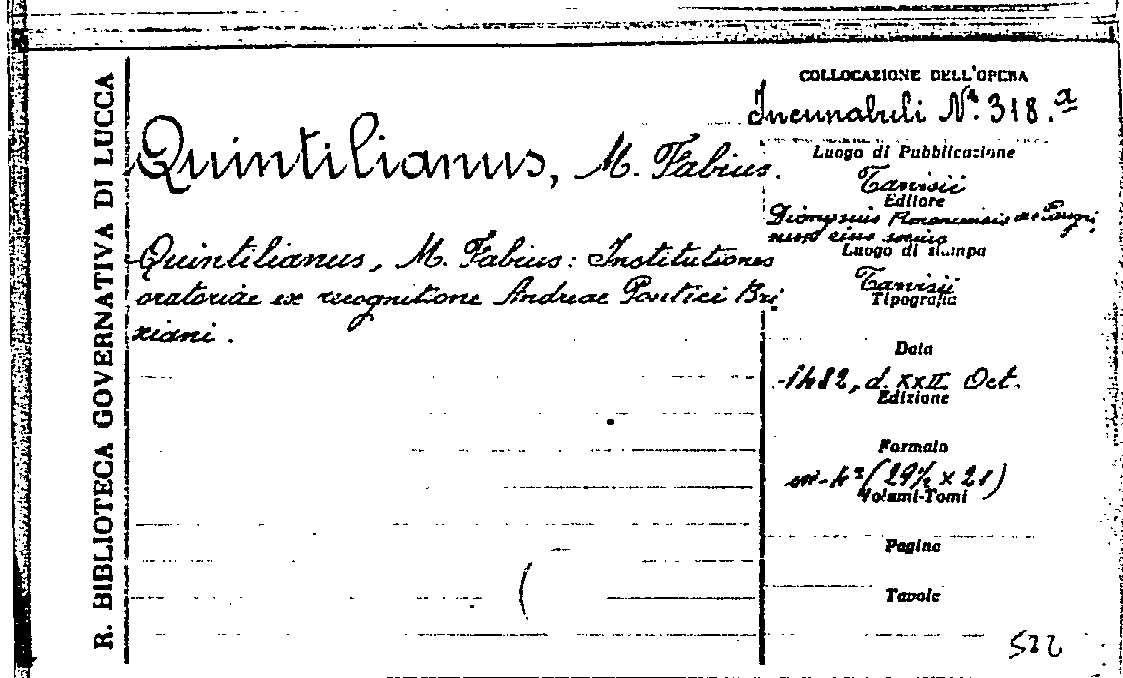 R. BIBLIOTECA GOVERNATIVA DI LUCCA
Quintilianus, M. Fabius.
Quintilianus, M. Fabius: Institutiones
oratoriae ex recognitione Andreae Pontici Bri
xiani.
COLLOCAZIONE DELL'OPERA
Incunabuli N.º 318.a
Luogo di Pubblicazione
Tarvisii
Editore
Dionysius Bononiensis et Peregri
nus eius socius
Luogo di stampa
Tarvisii
Tipografia
Data
1482, d. XXII Oct.
Edizione
Formato
in-4º (29½ x 21)
Volumi-Tomi
Pagine
Tavole
522